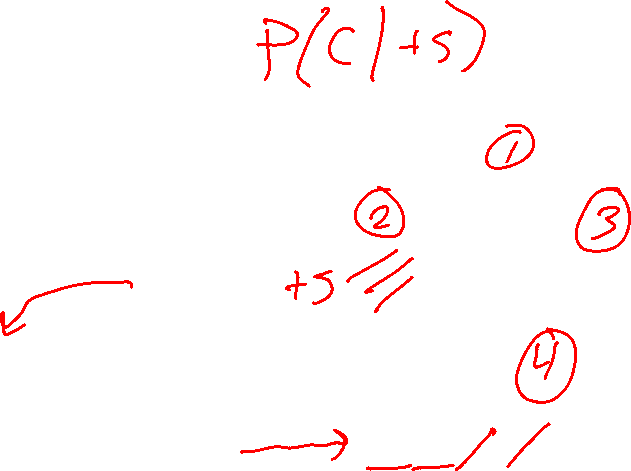 P(C|+s)
1
2
3
+s
4